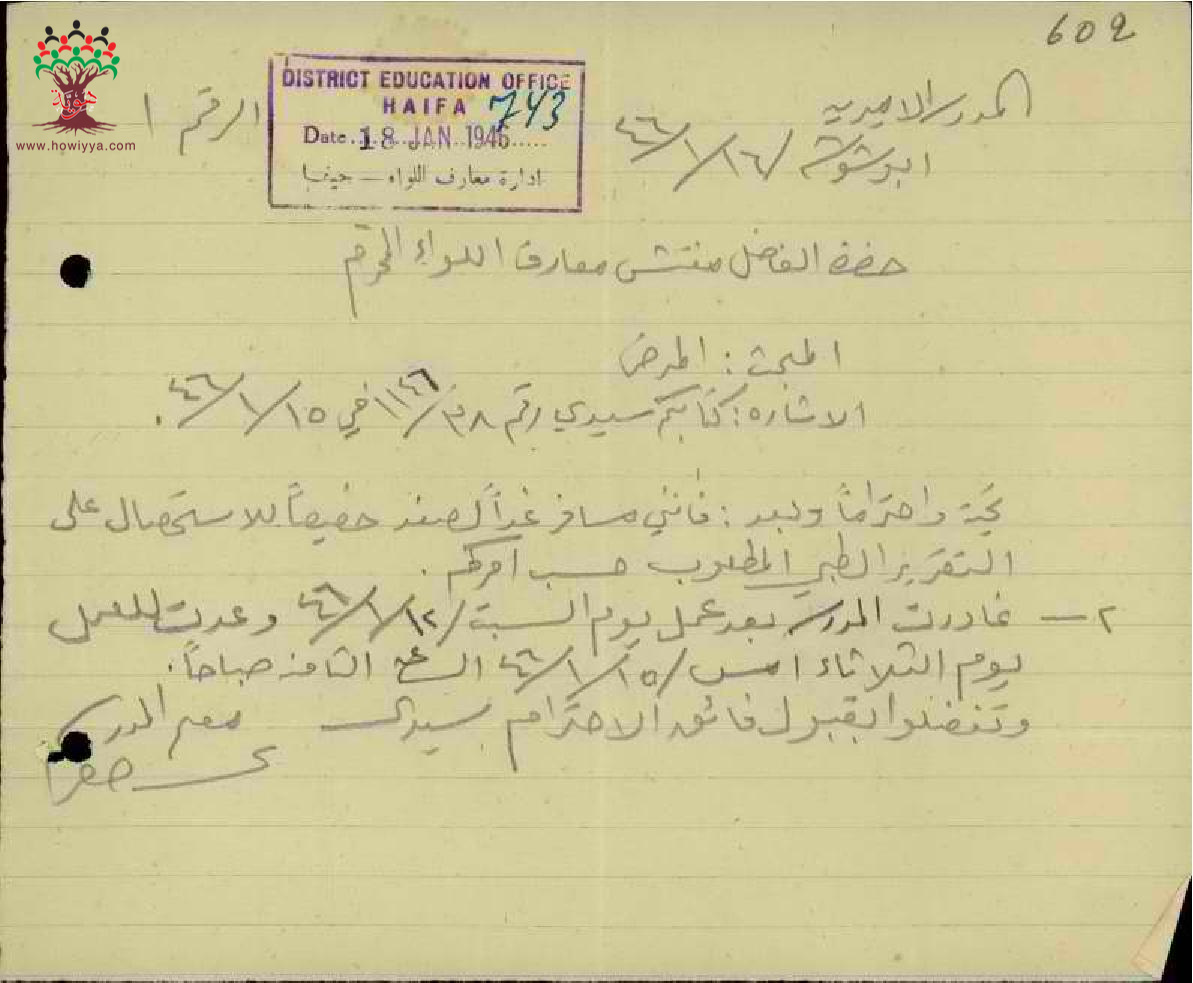 602
المدرسة الاميرية
ابو شوشة ١٦/١/٤٦
الرقم ١
DISTRICT EDUCATION OFFICE
HAIFA 743
Date. 18 JAN 1946
ادارة معارف اللواء — حيفا
www.howiyya.com
حضرة الفاضل مفتش معارف اللواء المحترم
المبحث : المرض
الاشاره : كتابكم سيدي رقم في ١٥/١/٤٦ .
تحية واحتراماً وبعد : فانني مسافر غداً لصفد خصيصاً للاستحصال على
التقرير الطبي المطلوب حسب امركم .
٢ — غادرت المدرسة بعد عمل يوم السبت ١٢/١/٤٦ وعدت للعمل
يوم الثلاثاء امس ١٥/١/٤٦ الساعة الثامنة صباحاً .
وتفضلوا بقبول فائق الاحترام سيدي
معلم المدرسة